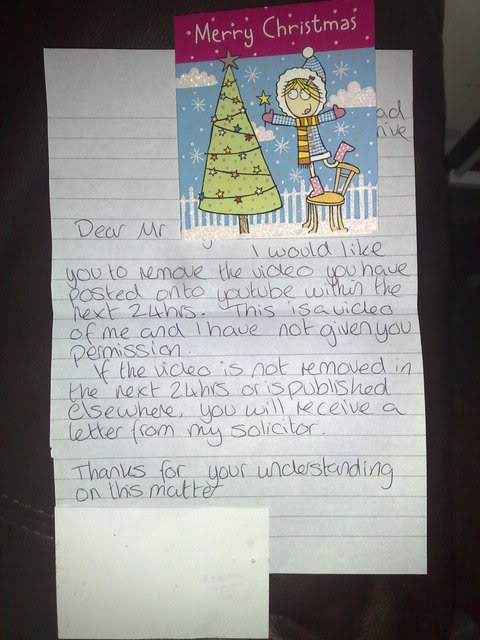 Merry Christmas
ad
Dear Mr
I would like
you to remove the video you have
posted onto youtube within the
next 24hrs. This is a video
of me and I have not given you
permission.
If the video is not removed in
the next 24hrs or is published
elsewhere, you will receive a
letter from my solicitor.
Thanks for your understanding
on this matter